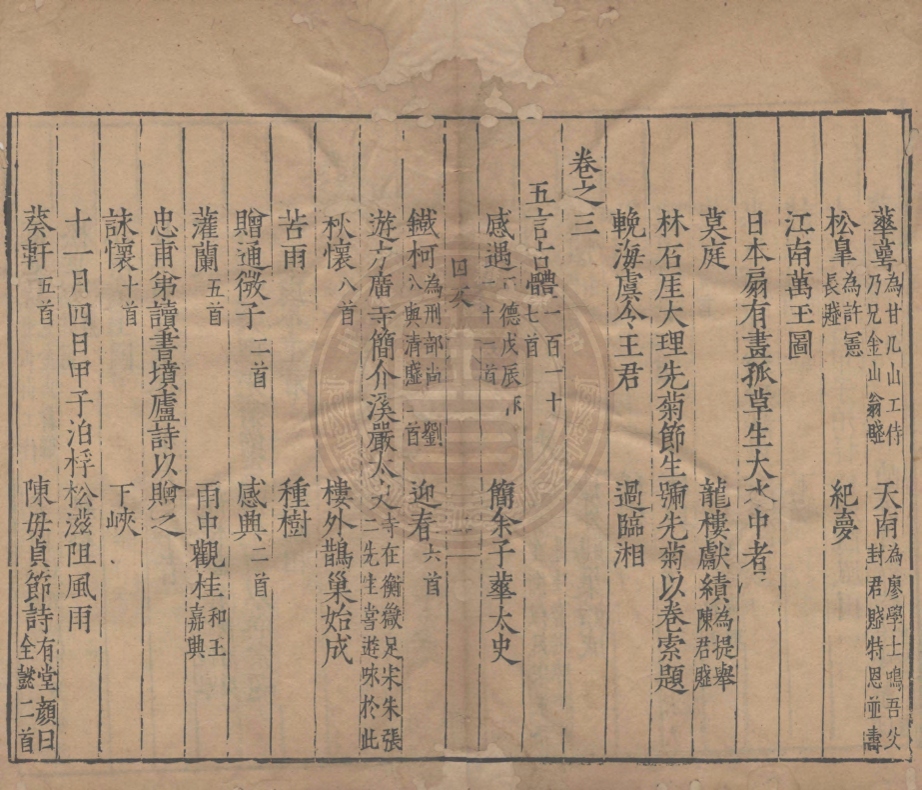 蕚萼為甘几山工侍乃兄金山翁賦 天南為廖學士鳴吾父封君賦特恩並壽
松皐為許憲長賦 紀夢
江南萬玉圖
日本扇有畫孤草生大水中者
莫庭 龍樓獻績為提舉陳君賦
林石厓大理先菊節生號先菊以卷索題
輓海虞今王君 過臨湘
卷之三
五言古體一百一十七首
感遇德戊辰十一首 簡余子華太史
鐵柯為刑部尚劉八輿清賦首 迎春六首
遊方廣寺簡介溪嚴太史寺在衡嶽足宋朱張二先生嘗遊咏於此
秋懷八首 樓外鵲巢始成
苦雨 種樹
贈通微子二首 感興二首
灌蘭五首 雨中觀桂和王嘉興
忠甫弟讀書墳廬詩以贈之
詠懷十首 下峽
十一月四日甲子泊桴松滋阻風雨
葵軒五首 陳毋貞節詩有堂顏曰全懿二首